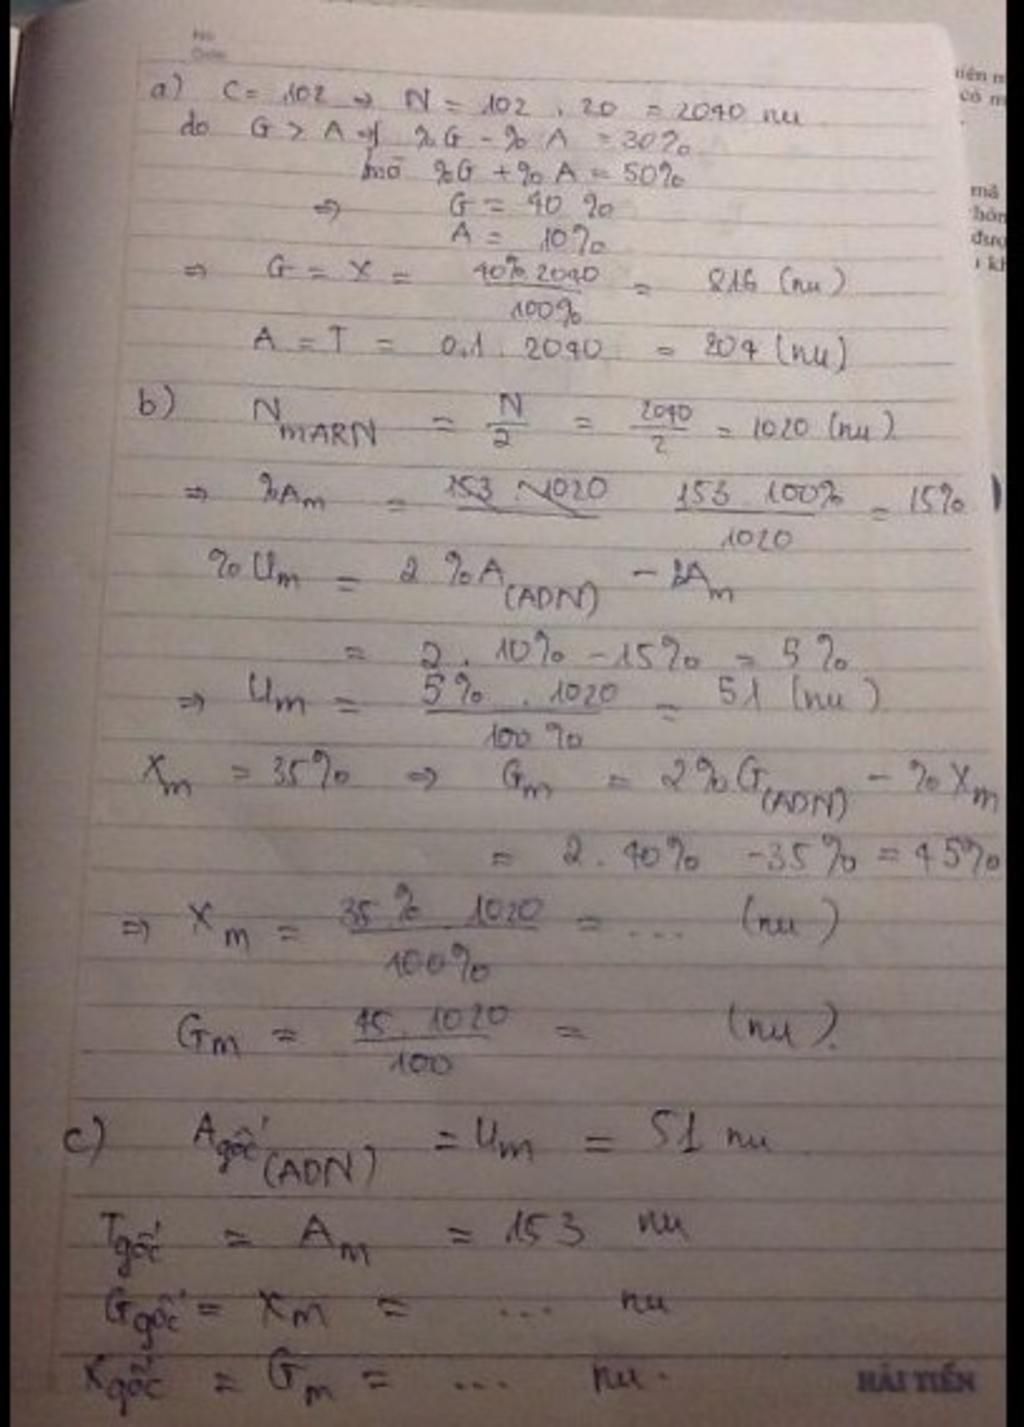 No
Date
iên n
có n
a) C = 102 => N = 102 . 20 = 2040 nu
do G > A => %G - % A = 30%
mà %G + % A = 50%
mã
=> G = 40 %
hón
A = 10%
đượ
=> G = X = 40%.2040 / 100% = 816 (nu)
i kh
A = T = 0,1 . 2040 = 204 (nu)
b) N mARN = N/2 = 2040/2 = 1020 (nu)
=> %Am = 153 . 1020 153 . 100% / 1020 = 15%
% Um = 2 %A (ADN) - %Am
= 2. 10% - 15% = 5%
=> Um = 5% . 1020 / 100% = 51 (nu)
Xm = 35% => Gm = 2%G(ADN) - % Xm
= 2. 40% - 35% = 45%
=> Xm = 35% . 1020 / 100% = ... (nu)
Gm = 45. 1020 / 100 = (nu).
c) Agốc (ADN) = Um = 51 nu
Tgốc = Am = 153 nu
Ggốc = Xm = ... nu
Xgốc = Gm = ... nu.
HẢI TIẾN